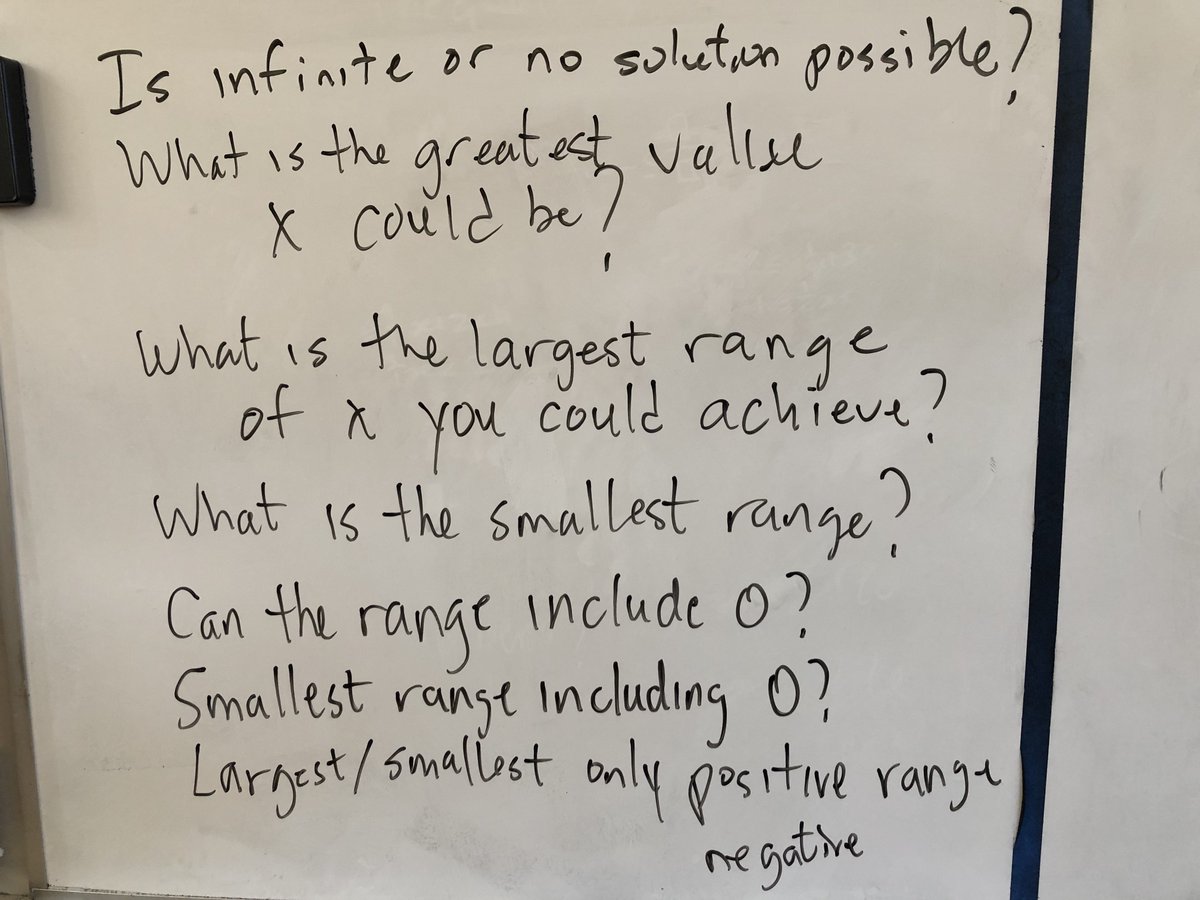 Is infinite or no solution possible?
What is the greatest value
x could be?
What is the largest range
of x you could achieve?
What is the smallest range?
Can the range include 0?
Smallest range including 0?
Largest/smallest only positive range
negative